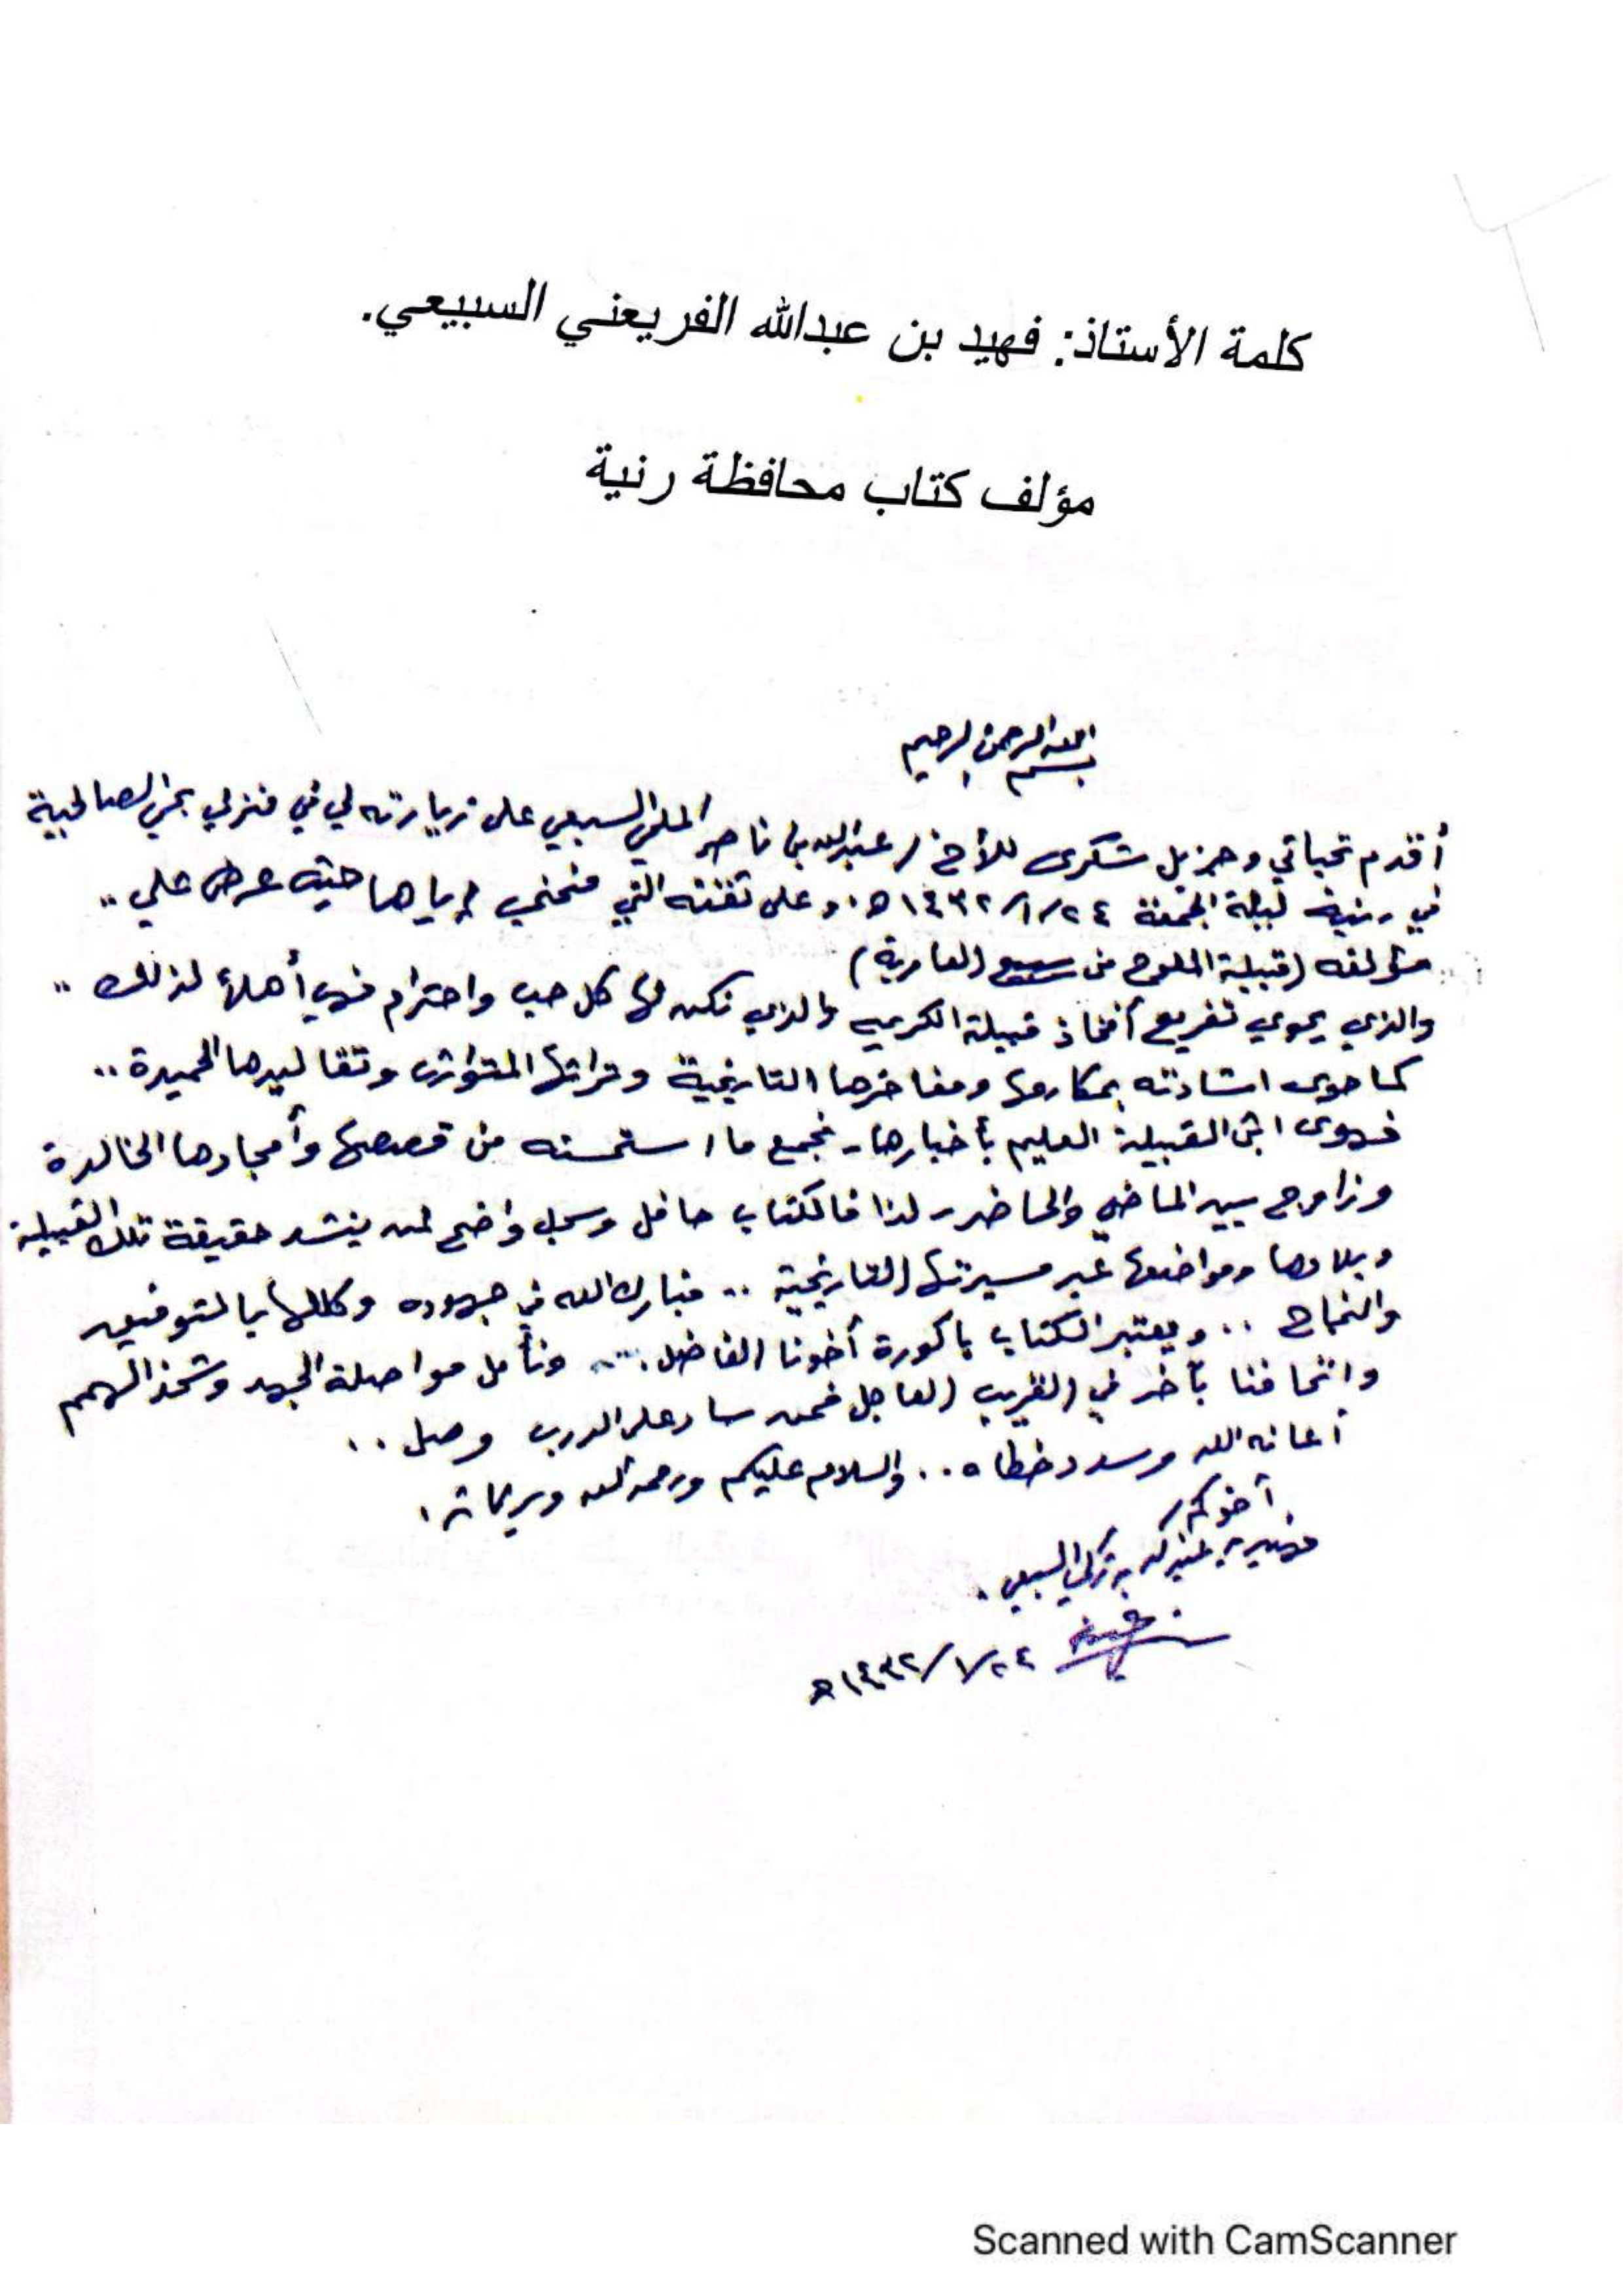 كلمة الأستاذ: فهيد بن عبدالله الفريعني السبيعي.
مؤلف كتاب محافظة رنية
بسم الله الرحمن الرحيم
أقدم تحياتي وجزيل شكري للأخ / عبدالله بن ناصر الملحي السبيعي على زيارته لي في منزلي بحي الصالحية
في رنية ليلة الجمعة ١٤٣٢/١/٢٤هـ وعلى ثقته التي منحني إياها حيث عرض علي ..
مؤلفه (قبيلة الملوح من سبيع العامرية)
والذي يحوي تفريع أفخاذ قبيلة الكريمة والذي نكن لها كل حب واحترام فهي أهلاً لذلك ..
كما حوى اشادته بمكارمها ومفاخرها التاريخية وتراثها المتوارث وتقاليدها الحميدة ..
فهو ابن القبيلة العليم بأخبارها - فجمع ما استحسنه من قصصها وأمجادها الخالدة
وزاوج بين الماضي والحاضر - لذا فالكتاب حافل وسجل واضح لمن ينشد حقيقة تلك القبيلة
وبلادها ومواضعها عبر مسيرتها التاريخية .. فبارك الله في جهوده وكللها بالتوفيق
والنجاح .. ويعتبر الكتاب باكورة أخونا الفاضل .. ونأمل مواصلة الجهد وشحذ الهمم
واتحافنا بآخر في القريب العاجل فمن سار على الدرب وصل ..
أعانه الله وسدد خطاه .. والسلام عليكم ورحمة الله وبركاته .
أخوكم /
فهيد بن عبدالله بن تركي السبيعي .
١٤٣٢/١/٢٤هـ
Scanned with CamScanner